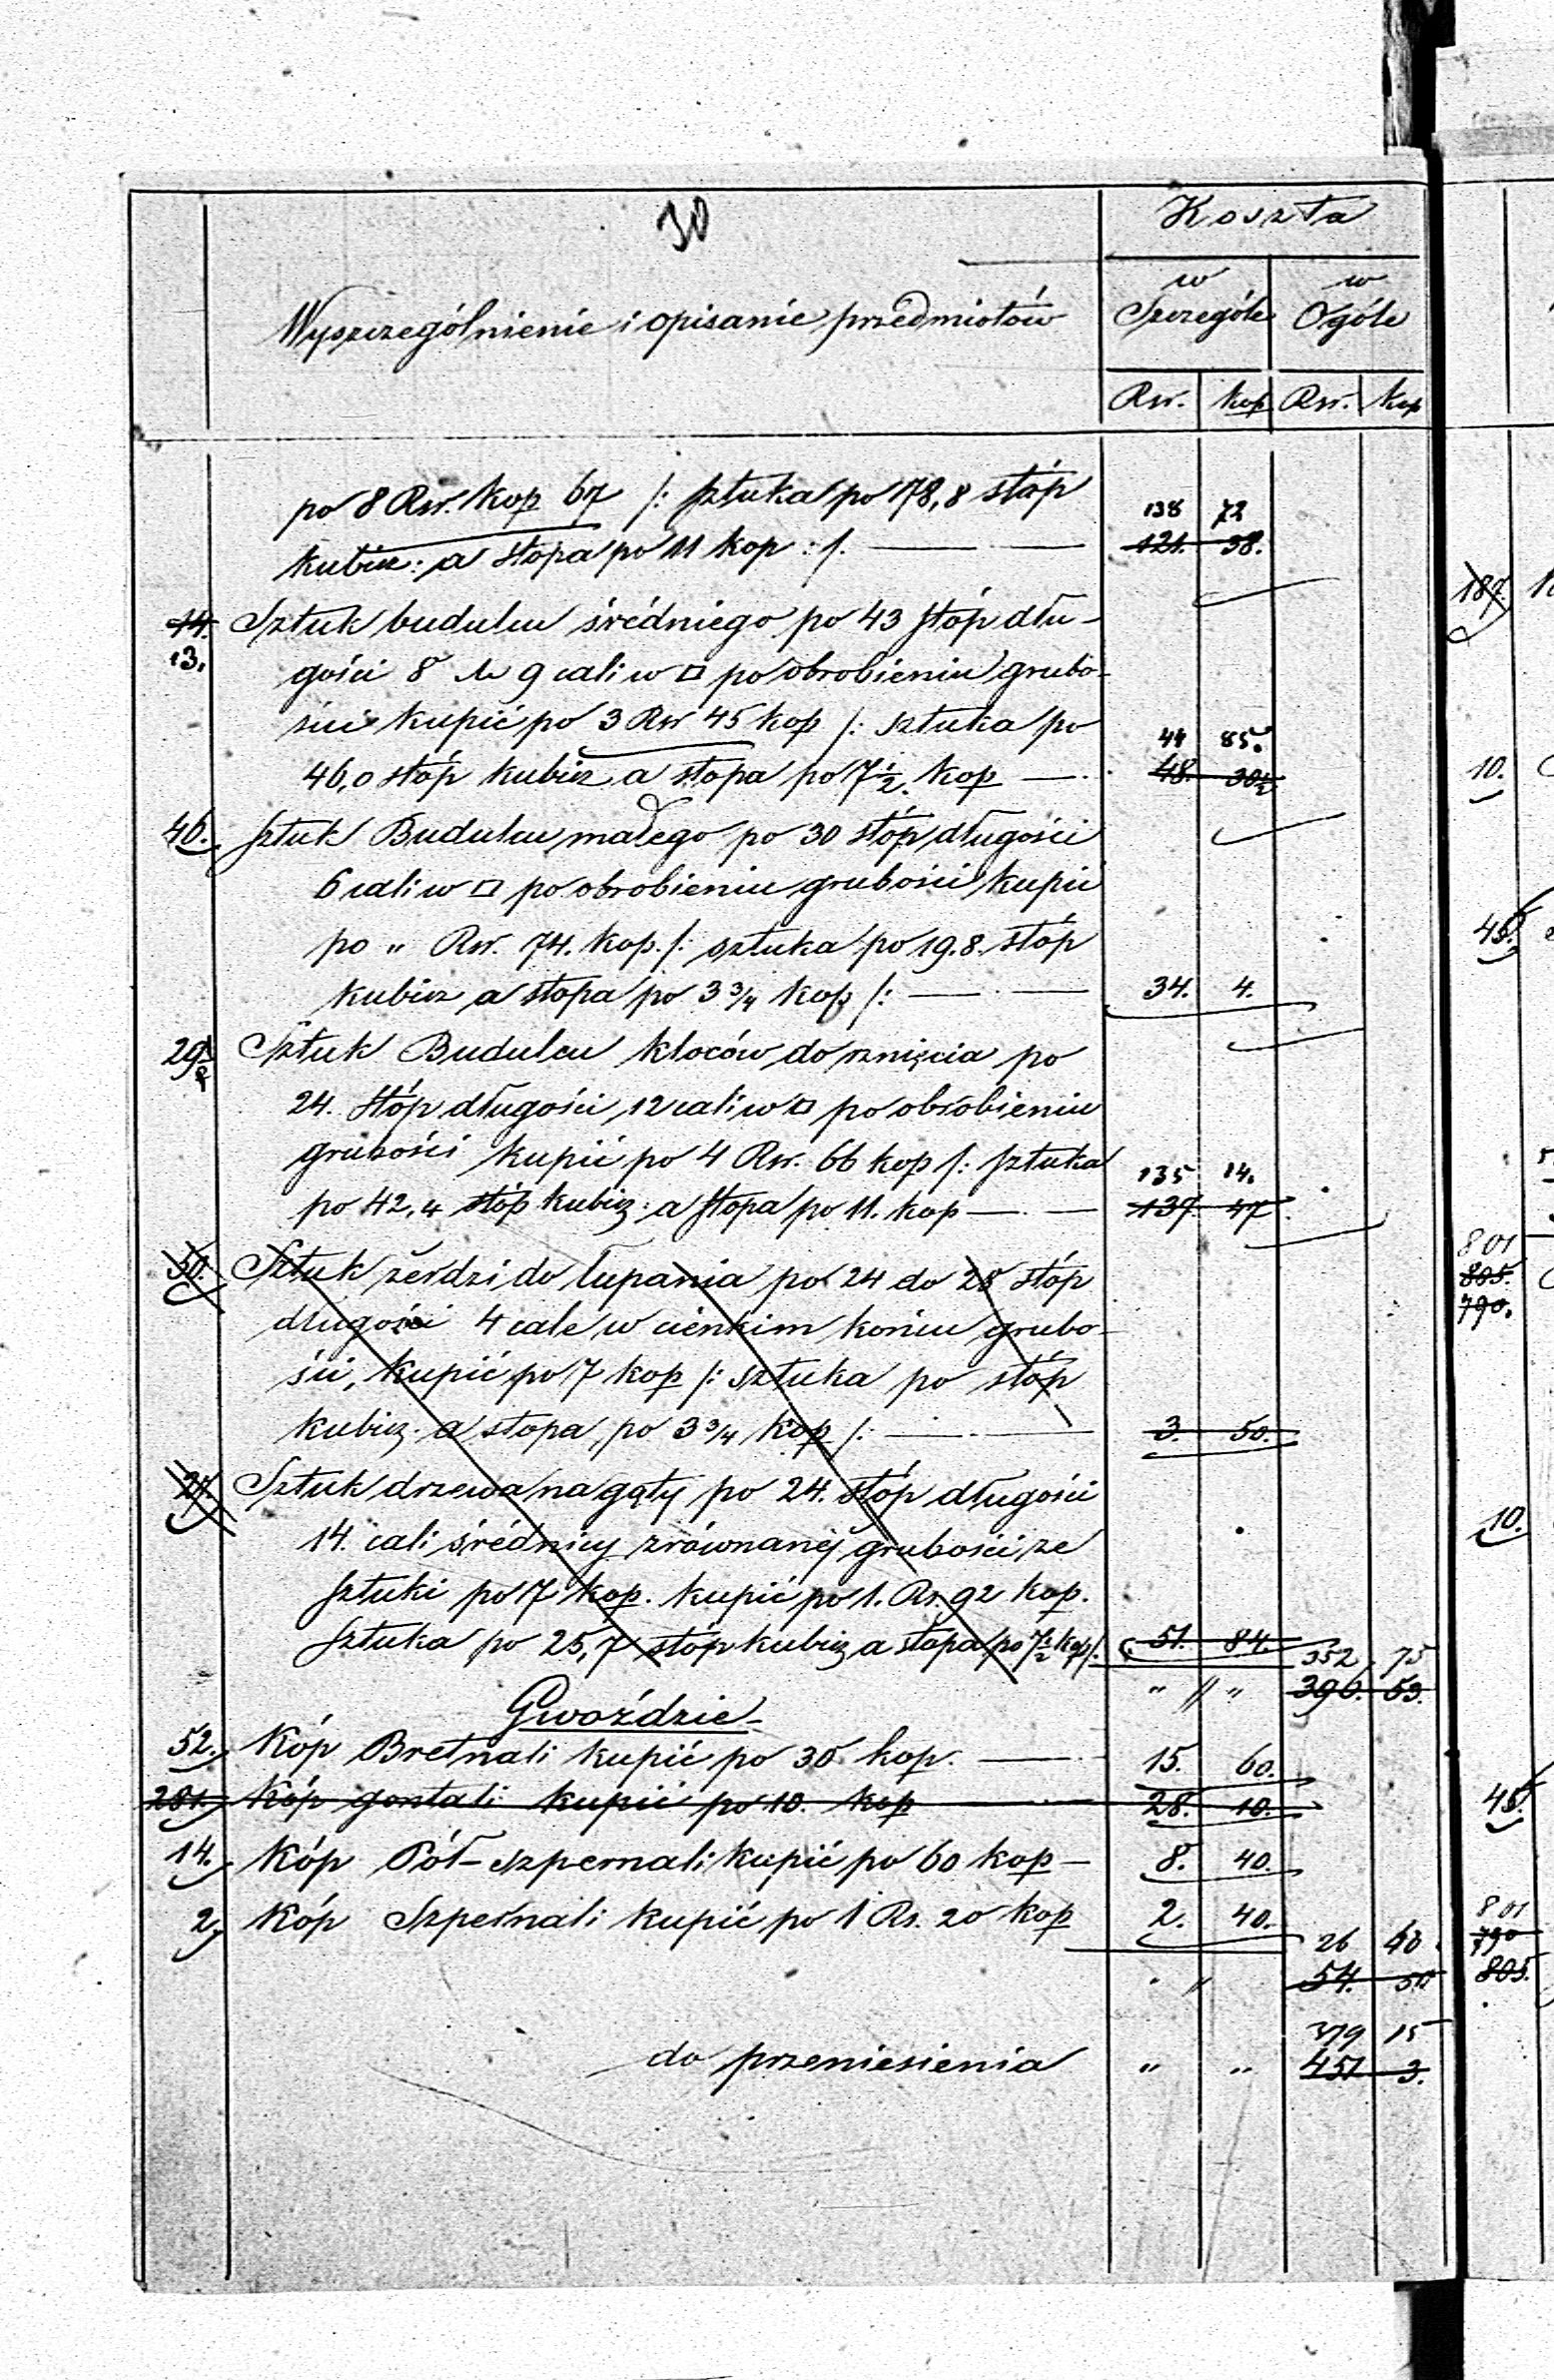 30
Koszta
Wyszczególnienie i opisanie przedmiotów
w Szczególe
w Ogóle
Rsr. kop Rsr. kop
po 8 Rsr. kop 67 /: sztuka po 78,8 stóp 138 72
kubicz: a stopa po 11 kop :/. 121. 38.
14. Sztuk budulcu średniego po 43 stóp dłu-
13. gości 8 9 cali w □ po obrobieniu grubo-
ści kupić po 3 Rsr 45 kop /: sztuka po 44 85.
46,0 stóp kubicz a stopa po 7 1/2 kop 48. 30 1/2
46. sztuk Budulcu małego po 30 stóp długości
6 cali w □ po obrobieniu grubości kupić
po " Rsr. 74. kop. /: sztuka po 19.8. stóp
kubicz a stopa po 3 3/4 kop /: 34. 4.
29. Sztuk Budulcu kloców do rznięcia po
24. stóp długości 12 cali w □ po obrobieniu
grubości kupić po 4 Rsr. 66 kop /: sztuka 135 14.
po 42,4 stóp kubicz: a stopa po 11. kop 139. 47
50. Sztuk żerdzi do łupania po 24 do 28 stóp
długości 4 cale w cienkim końcu grubo-
ści, kupić po 7 kop /: sztuka po stóp
kubicz. a stopa po 3 3/4 kop /: 3. 50.
27. Sztuk drzewa na gąty po 24. stóp długości
14. cali średnicy zrównanej grubości ze
sztuki po 7 kop. kupić po 1. Rs. 92 kop.
sztuka po 25,7 stóp kubicz a stopa po 7 1/2 kop /. 51. 84. 352 75
" " 396. 53.
Gwoździe
52. Kóp Bretnali kupić po 30 kop. 15. 60.
281. Kóp gontali kupić po 10. kop 28. 10.
14. Kóp Pół-szpernali kupić po 60 kop 8. 40.
2. Kóp Szpernali kupić po 1 Rs. 20 kop 2. 40.
26 40.
54. 50
379 15
do przeniesienia " " 451 3.
187.
10.
45.
801
805.
790.
10.
45.
801
790
805.